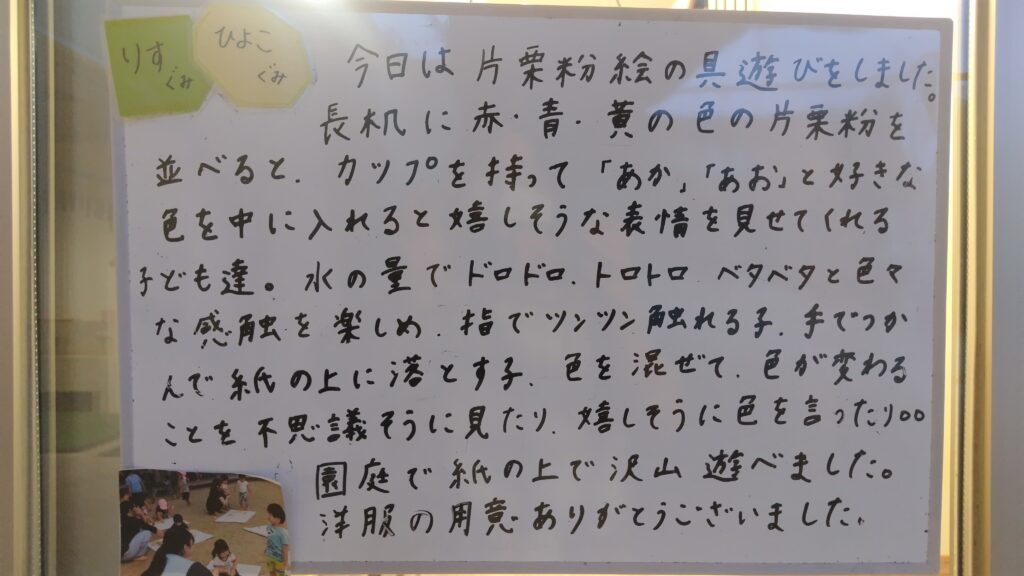 りすぐみ
ひよこぐみ
今日は片栗粉絵の具遊びをしました。
長机に赤・青・黄の色の片栗粉を
並べると、カップを持って「あか」「あお」と好きな
色を中に入れると嬉しそうな表情を見せてくれる
子ども達。水の量でドロドロ、トロトロ ベタベタと色々
な感触を楽しめ、指でツンツン触れる子、手でつか
んで紙の上に落とす子、色を混ぜて、色が変わる
ことを不思議そうに見たり、嬉しそうに色を言ったり○○
園庭で紙の上で沢山遊べました。
洋服の用意ありがとうございました。